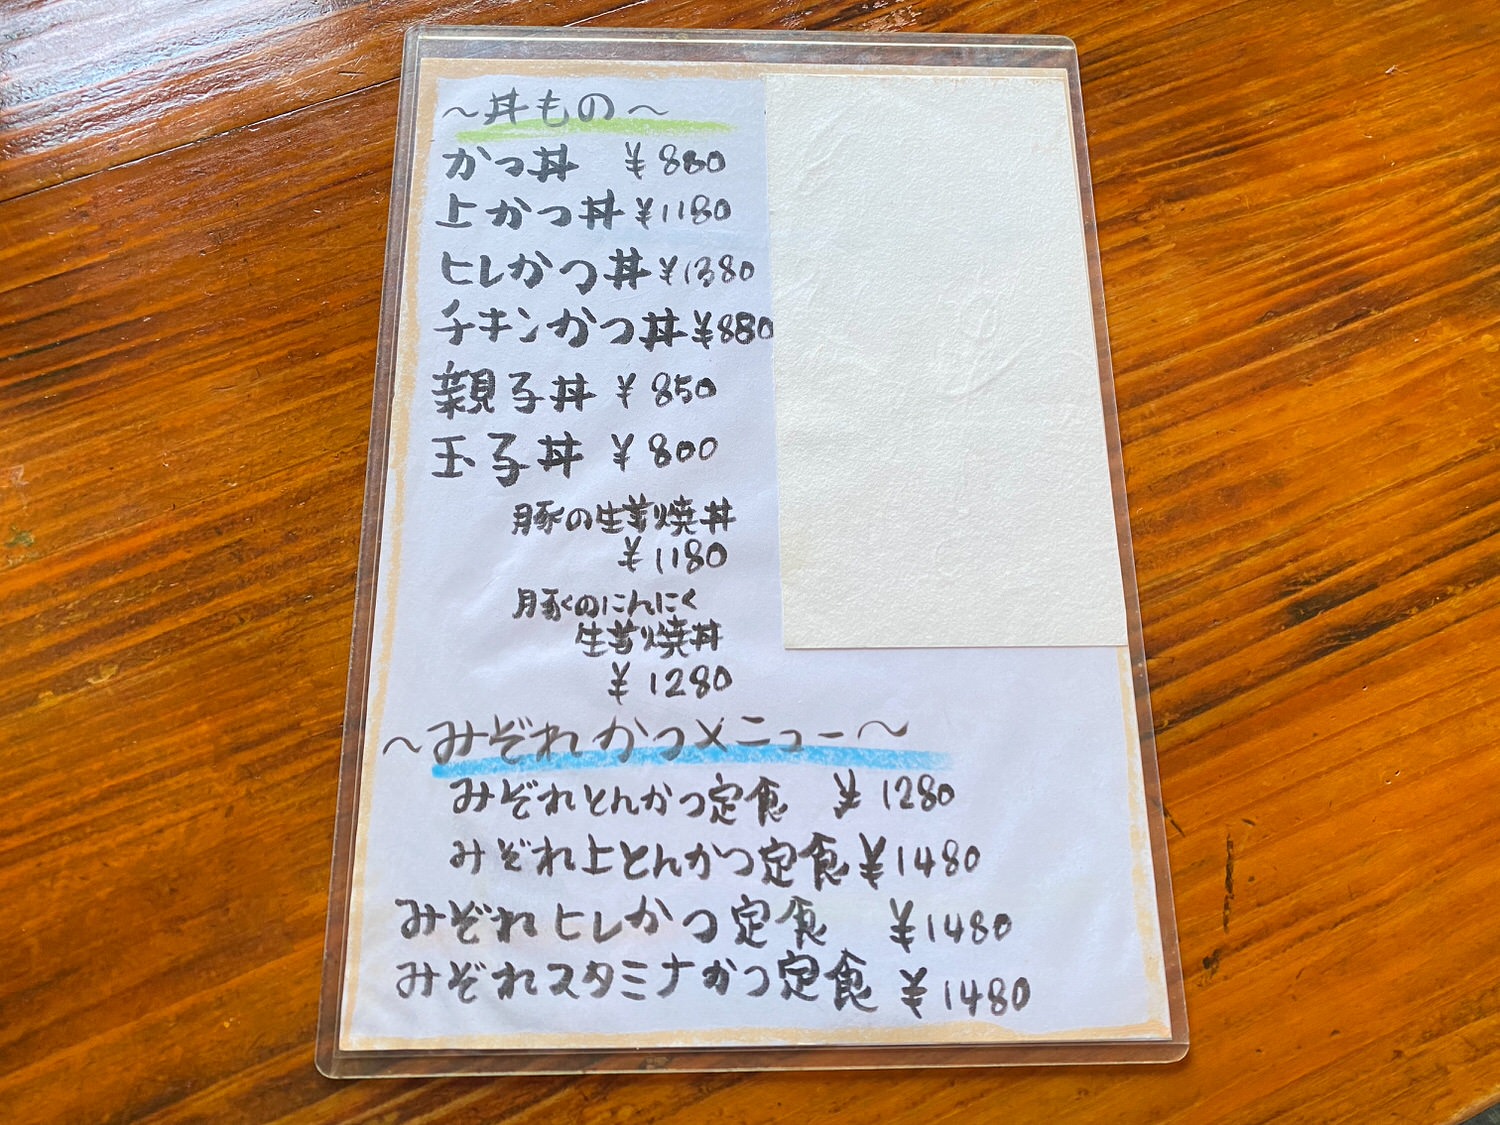 ～丼もの～
かつ丼 ¥880
上かつ丼 ¥1180
ヒレかつ丼 ¥1380
チキンかつ丼 ¥880
親子丼 ¥850
玉子丼 ¥800
豚の生姜焼丼
¥1180
豚のにんにく
生姜焼丼
¥1280
～みぞれかつメニュー～
みぞれとんかつ定食 ¥1280
みぞれ上とんかつ定食 ¥1480
みぞれヒレかつ定食 ¥1480
みぞれスタミナかつ定食 ¥1480